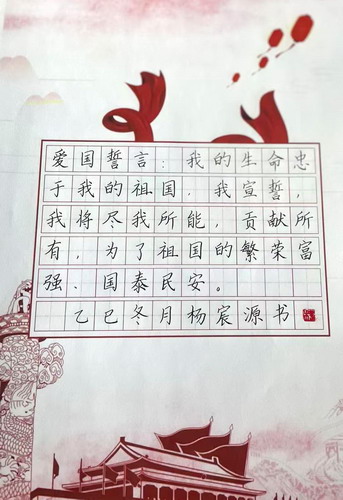 爱国誓言：我的生命忠
于我的祖国，我宣誓，
我将尽我所能，贡献所
有，为了祖国的繁荣富
强、国泰民安。
乙巳冬月杨宸源书